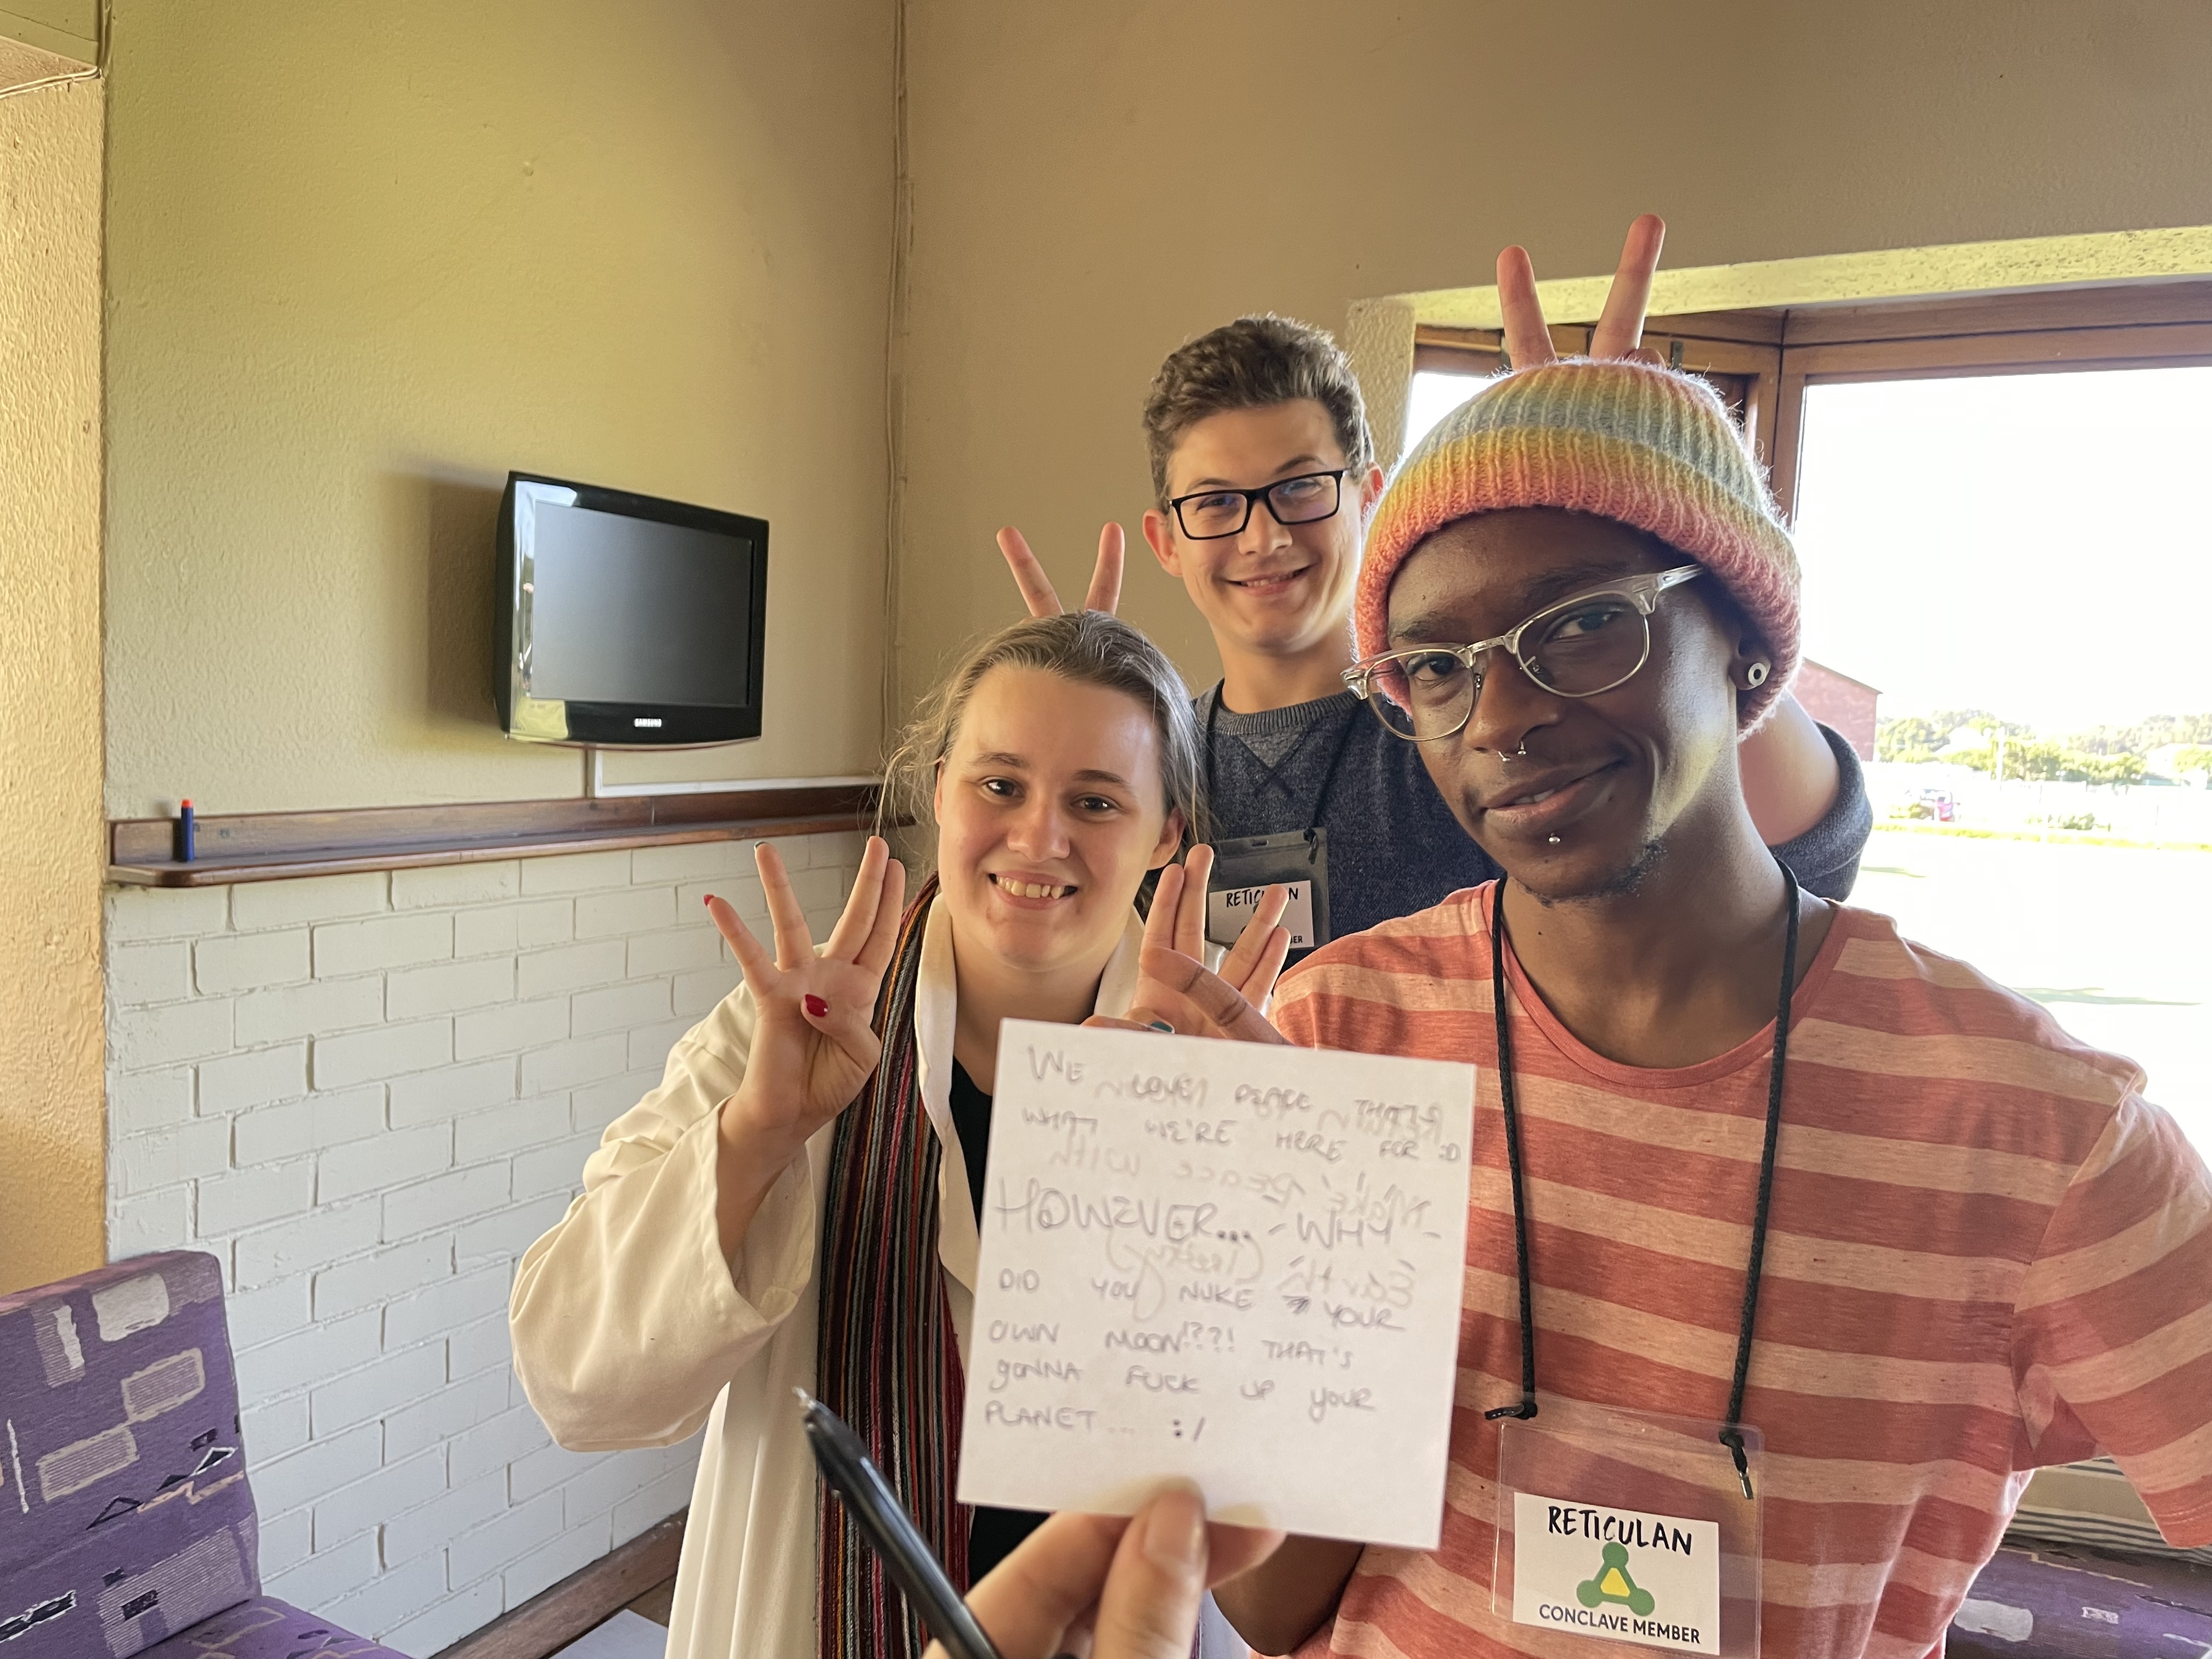 SAMSUNG
RETIC N
BER
WE LOVE PEACE THAT'S
WHAT WE'RE HERE FOR :D
HOWEVER... - WHY -
DID YOU NUKE YOUR
OWN MOON!??! THAT'S
gONNA FUCK UP YOUR
PLANET... :/
RETICULAN
CONCLAVE MEMBER